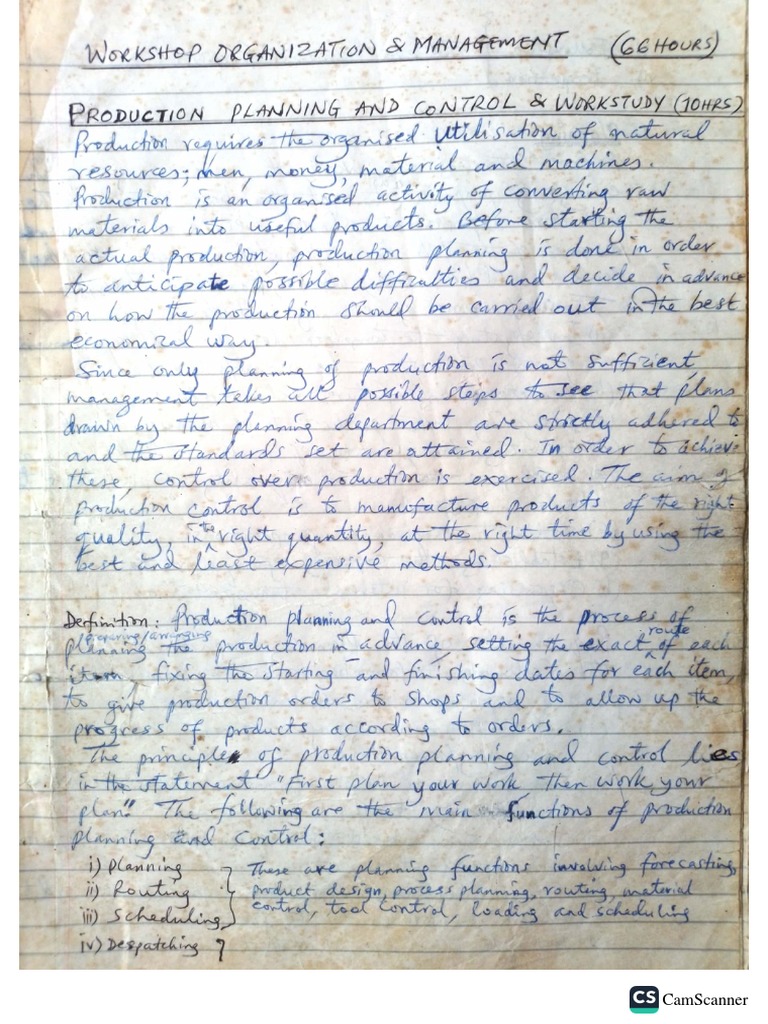 WORKSHOP ORGANIZATION & MANAGEMENT (66 HOURS)
PRODUCTION PLANNING AND CONTROL & WORKSTUDY (10HRS)
Production requires the organised utilisation of natural
resources; men, money, material and machines.
Production is an organised activity of converting raw
materials into useful products. Before starting the
actual production, production planning is done in order
to anticipate possible difficulties and decide in advance
on how the production should be carried out in the best
economical way.
Since only planning of production is not sufficient,
management takes all possible steps to see that plans
drawn by the planning department are strictly adhered to
and the standards set are attained. In order to achieve
these, control over production is exercised. The aim of
production control is to manufacture products of the right
quality, in the right quantity, at the right time by using the
best and least expensive methods.
Derfinition: Production planning and control is the process of
preparing/arranging route
planning the production in advance, setting the exact of each
item, fixing the starting and finishing dates for each item,
to give production orders to shops and to allow up the
progress of products according to orders.
The principle of production planning and control lies
in the statement "First plan your work, then work your
plan". The following are the main functions of production
planning and control:
i) Planning
ii) Routing
iii) Scheduling
These are planning functions involving forecasting,
product design, process planning, routing, material
control, tool control, loading and scheduling
iv) Despatching
CS CamScanner